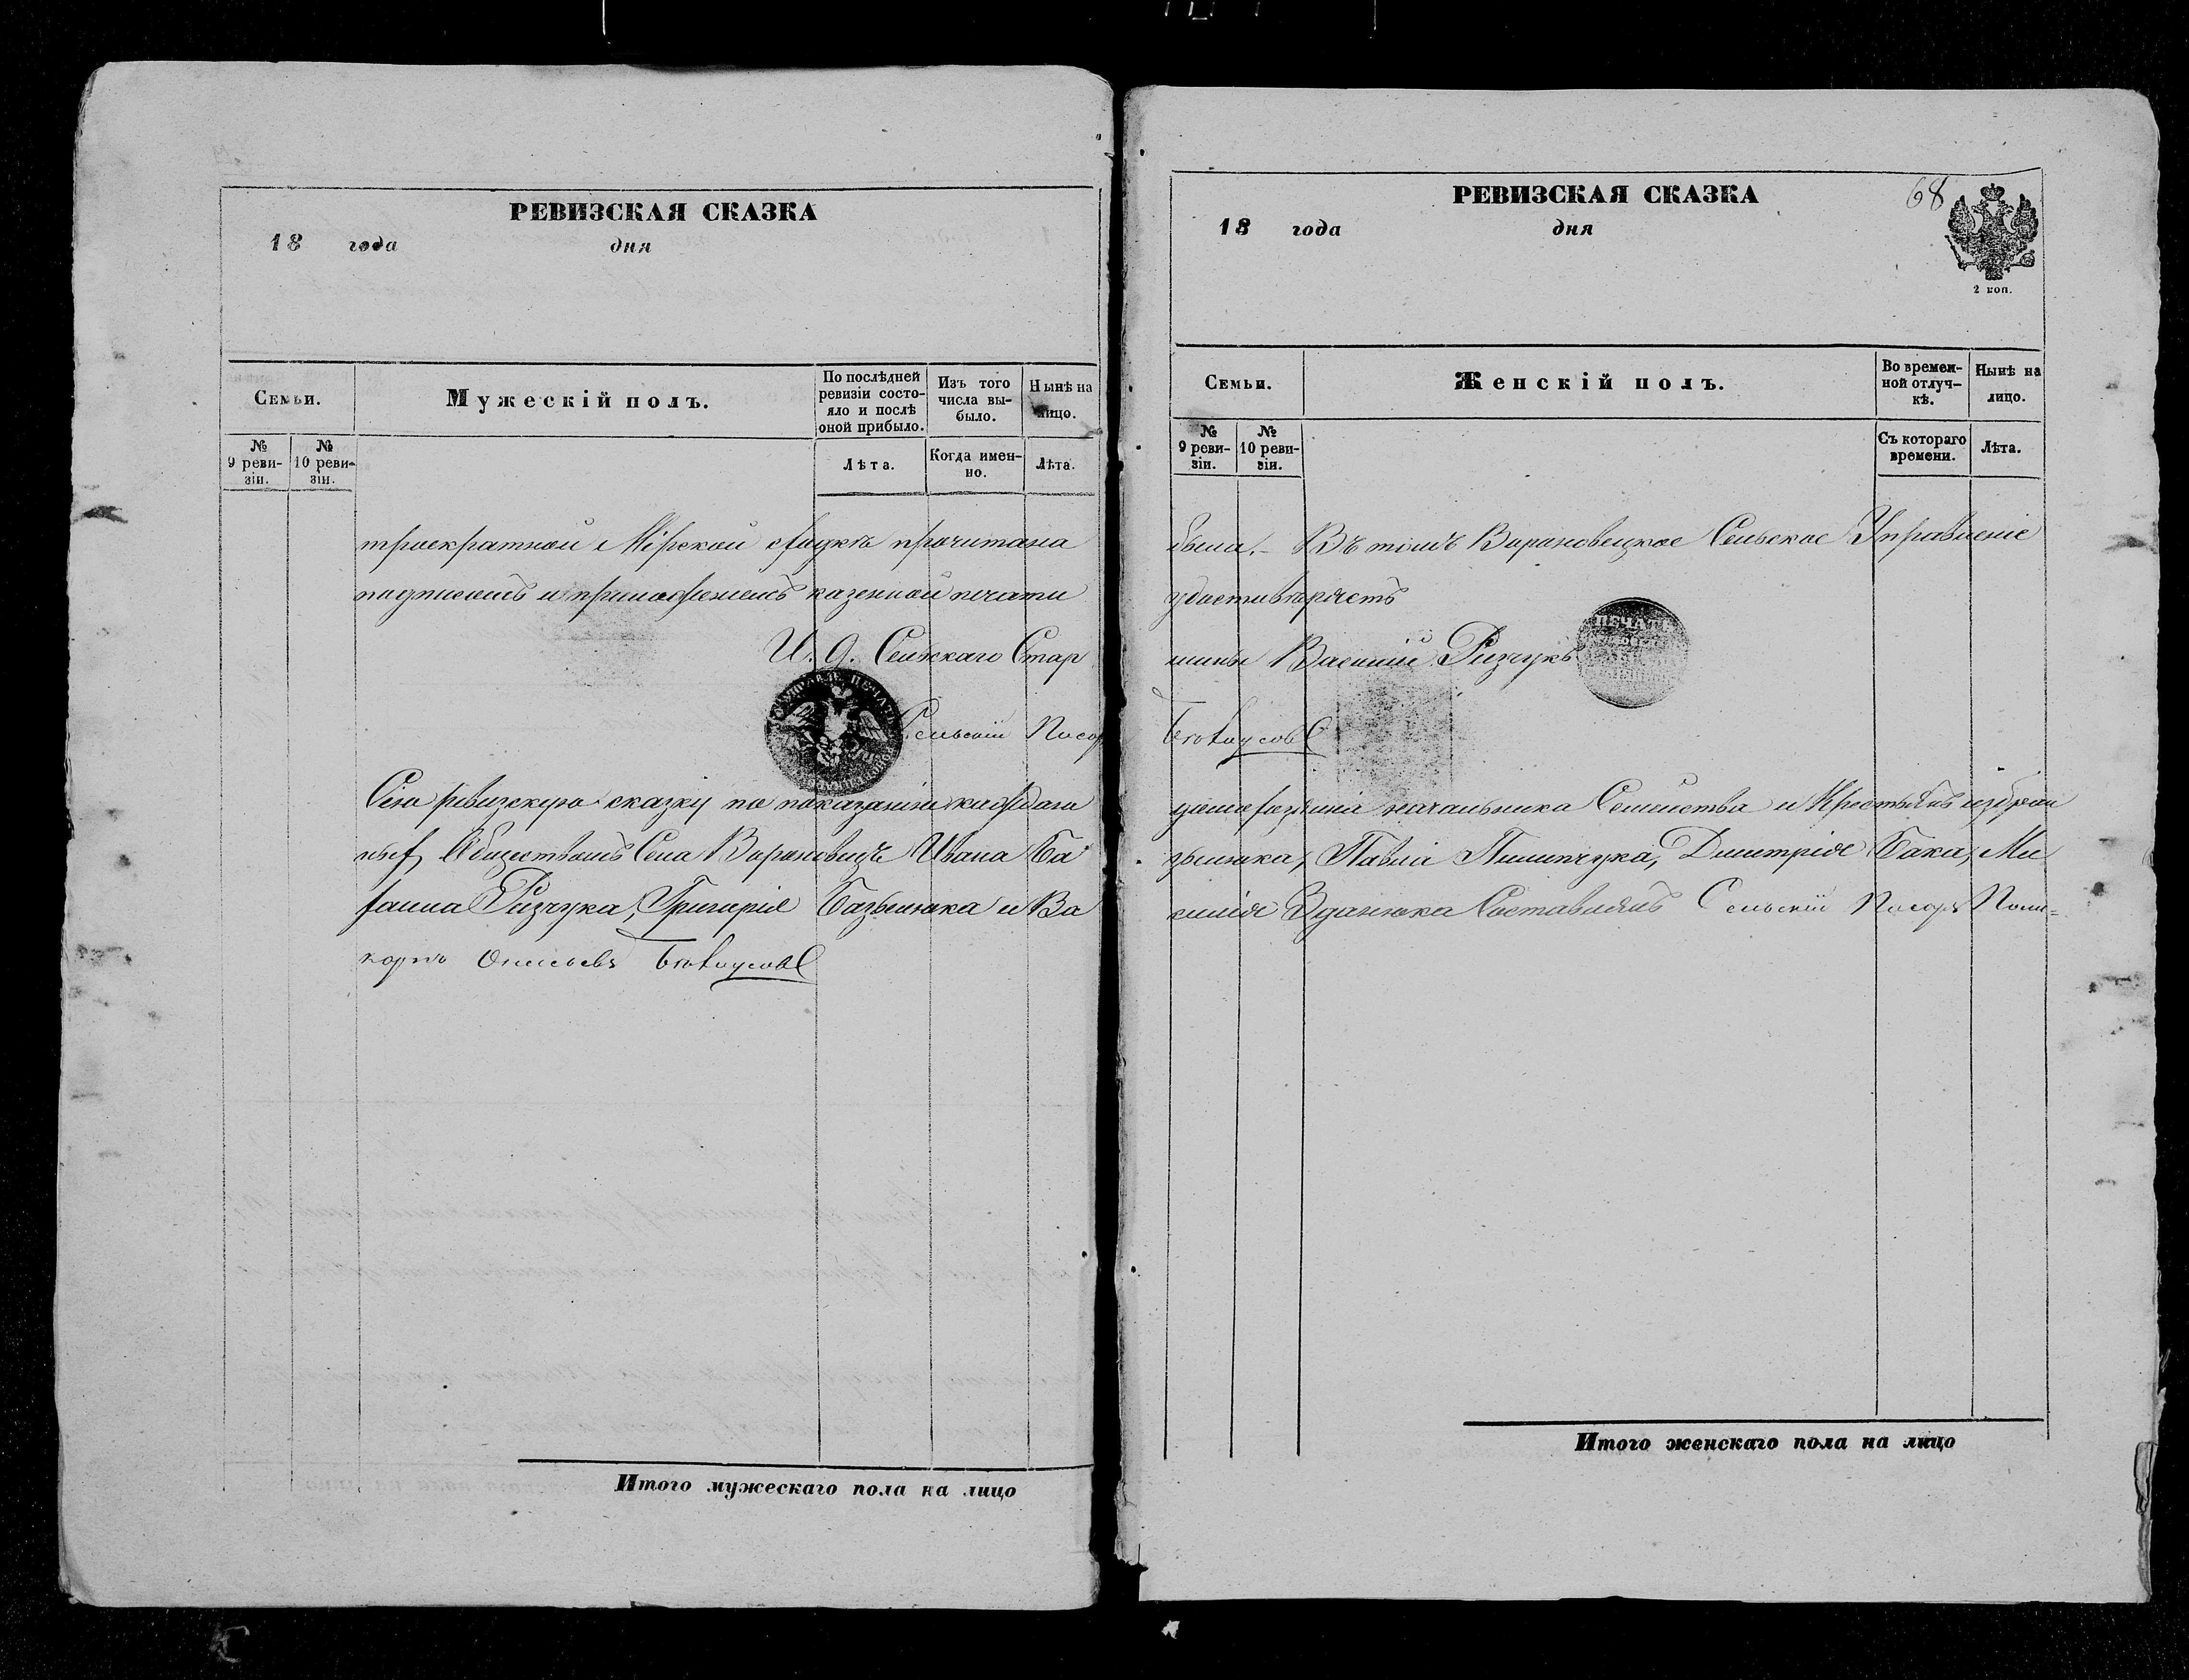 РЕВИЗСКАЯ СКАЗКА
18 года дня
Семьи.
Мужескій полъ.
По послѣдней ревизіи состо-
яло и послѣ оной прибыло.
Изъ того числа вы-
было.
Нынѣ на лицо.
№ 9 реви-
зіи.
№ 10 реви-
зіи.
Лѣта.
Когда имен-
но.
Лѣта.
троекратной Мірской сходкѣ прочитана
подписомъ и приложеніемъ казенной печати
И. д. Сельскаго Стар
Сельскій Писар
Сію ревизскую сказку по показанію каждаго
ных Обществомъ Села Вороновецъ Ивана Ба
хаила Ризчука, Григорія Базьелюка и Ва
карпъ Бѣлоусовъ
Итого мужескаго пола на лицо
РЕВИЗСКАЯ СКАЗКА
68
18 года дня
2 коп.
Семьи.
Женскій полъ.
Во времен-
ной отлуч-
кѣ.
Нынѣ на лицо.
№ 9 реви-
зіи.
№ 10 реви-
зіи.
Съ котораго времени.
Лѣта.
была.- Въ томъ Вороновецкое Сельское Управленіе
удостовѣряетъ
шины Василій Ризчукъ
ПЕЧАТЬ
Бѣлоусовъ
домохозяина начальника Семейства и Крестьянъ избран
зьелюка, Павла Пилипчука, Димитрія Бака, Ми
силія Зданюка Составлялъ Сельскій Писарь Поли-
Итого женскаго пола на лицо